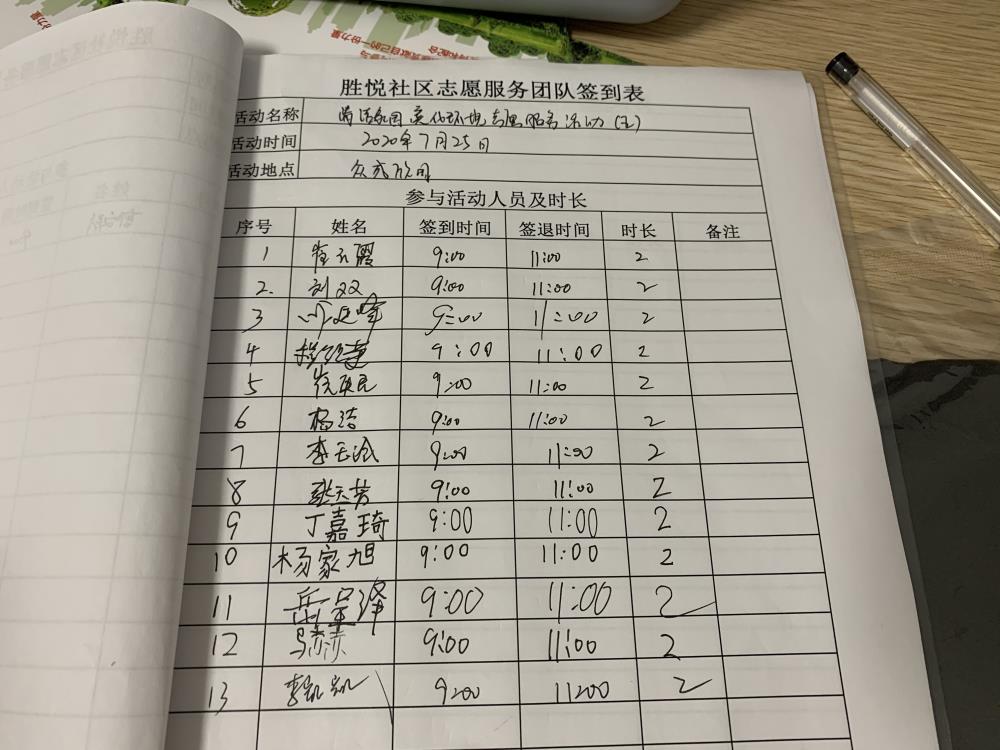 胜悦社区志愿服务团队签到表
活动名称 清洁家园 美化环境 志愿服务活动(五)
活动时间 2020年7月25日
活动地点 众成欣园
参与活动人员及时长
序号 姓名 签到时间 签退时间 时长 备注
1 9:00 11:00 2
2. 刘双 9:00 11:00 2
3 9:00 11:00 2
4 9:00 11:00 2
5 9:00 11:00 2
6 杨洁 9:00 11:00 2
7 李云 9:00 11:00 2
8 张天芳 9:00 11:00 2
9 丁嘉琦 9:00 11:00 2
10 杨家旭 9:00 11:00 2
11 9:00 11:00 2
12 马赫 9:00 11:00 2
13 李凯凯 9:00 11:00 2